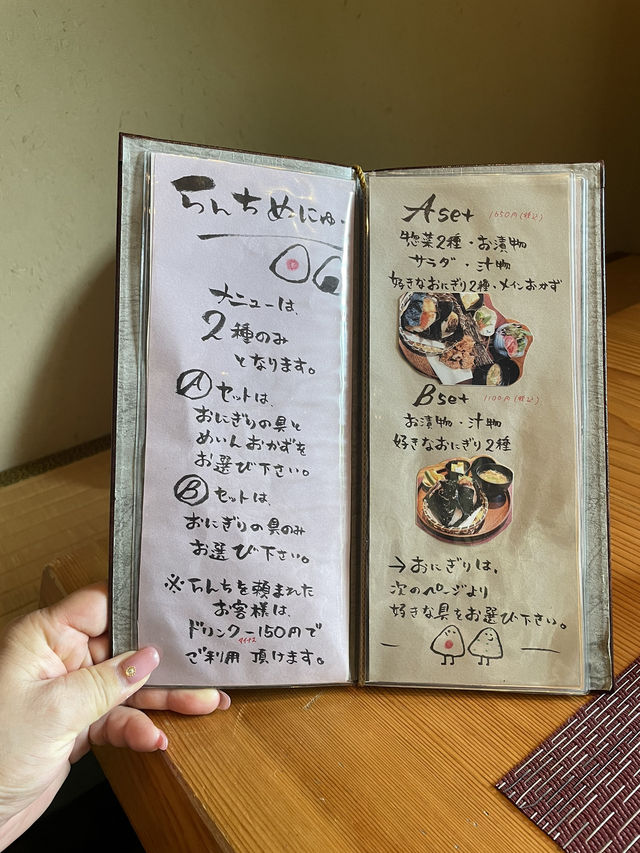 らんちめにゅー
メニューは、
2種のみ
となります。
Ⓐセットは、
おにぎりの具と
めいんおかずを
お選び下さい。
Ⓑセットは、
おにぎりの具のみ
お選び下さい。
※らんちを頼まれた
お客様は、
ドリンクー150円で
マイナス
ご利用頂けます。
Aset 1650円(税込)
惣菜2種・お漬物
サラダ・汁物
好きなおにぎり2種・メインおかず
Bset 1100円(税込)
お漬物・汁物
好きなおにぎり2種
→おにぎりは、
次のページより
好きな具をお選び下さい。